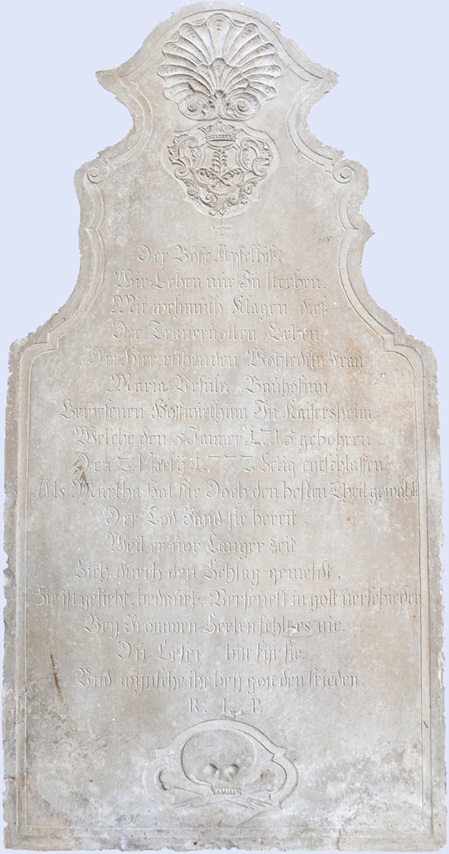 Der Böse Apfelbiß:
Wir Leben nur Zu sterben.
Mit wehmuth Klagen daß
Der Tugentvollen Leben
Der Hier ruhenden Wohledlen Frau
Maria Ursula
Gewesenen Hofwürthung In Kaisersheim.
Welche den 5 Januer geboren
Den 1777 Selig entschlaffen
Als Martha hat sie Doch den besten Theil gewählt
Der Tod Fand sie bereit.
Weil er vor Langer Zeit
Sich durch den Schlag gemeldt.
Sie ist geliebt, bedaurt, Versenckt in gott verschieden
Beÿ Frommen Seelen fehlt es nie.
Du Leser bitt für sie.
Und wünsche ihr beÿ gott den frieden.
R. I. P.